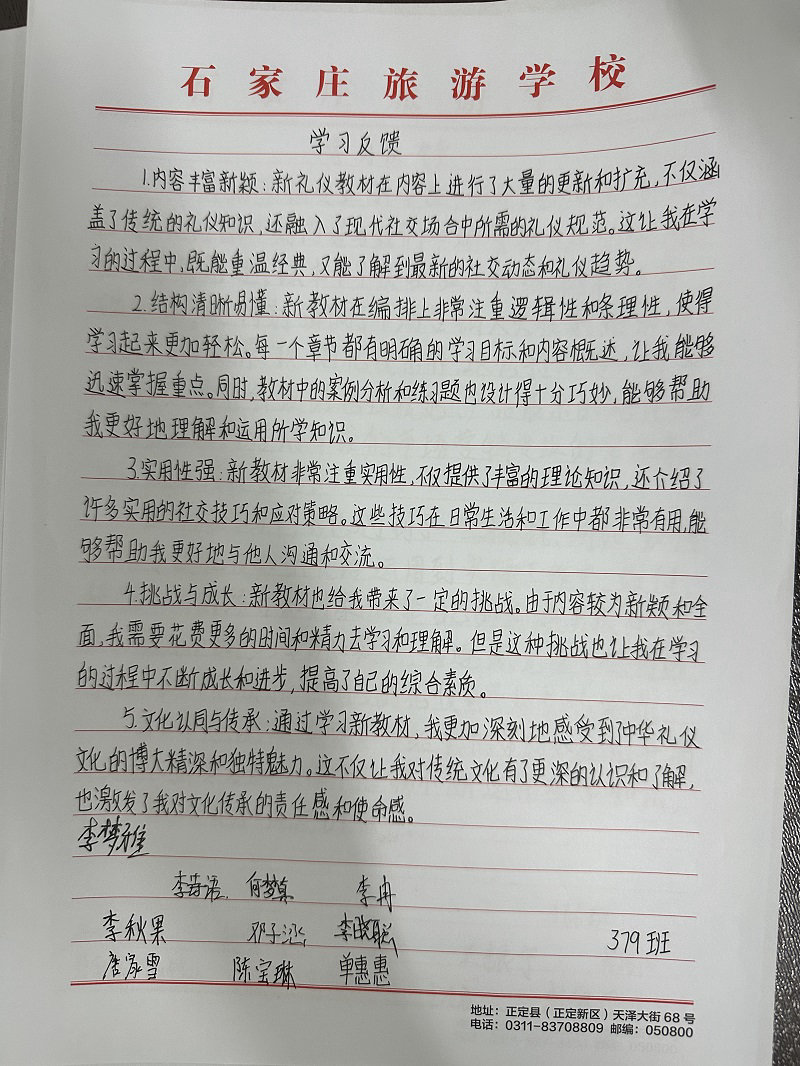 石家庄旅游学校
学习反馈
1.内容丰富新颖：新礼仪教材在内容上进行了大量的更新和扩充，不仅涵
盖了传统的礼仪知识，还融入了现代社交场合中所需的礼仪规范。这让我在学
习的过程中，既能重温经典，又能了解到最新的社交动态和礼仪趋势。
2.结构清晰易懂：新教材在编排上非常注重逻辑性和条理性，使得
学习起来更加轻松。每一个章节都有明确的学习目标和内容概述，让我能够
迅速掌握重点。同时，教材中的案例分析和练习题也设计得十分巧妙，能够帮助
我更好地理解和运用所学知识。
3.实用性强：新教材非常注重实用性，不仅提供了丰富的理论知识，还介绍了
许多实用的社交技巧和应对策略。这些技巧在日常生活和工作中都非常有用，能
够帮助我更好地与他人沟通和交流。
4.挑战与成长：新教材也给我带来了一定的挑战。由于内容较为新颖和全
面，我需要花费更多的时间和精力去学习和理解。但是这种挑战也让我在学习
的过程中不断成长和进步，提高了自己的综合素质。
5.文化认同与传承：通过学习新教材，我更加深刻地感受到中华礼仪
文化的博大精深和独特魅力。这不仅让我对传统文化有了更深的认识和了解，
也激发了我对文化传承的责任感和使命感。
李梦雅
李诗语 何梦 李冉
李秋果 邓子涵 李晓聪 379班
唐家雪 陈宝琳 单惠惠
地址：正定县（正定新区）天泽大街68号
电话：0311-83708809 邮编：050800